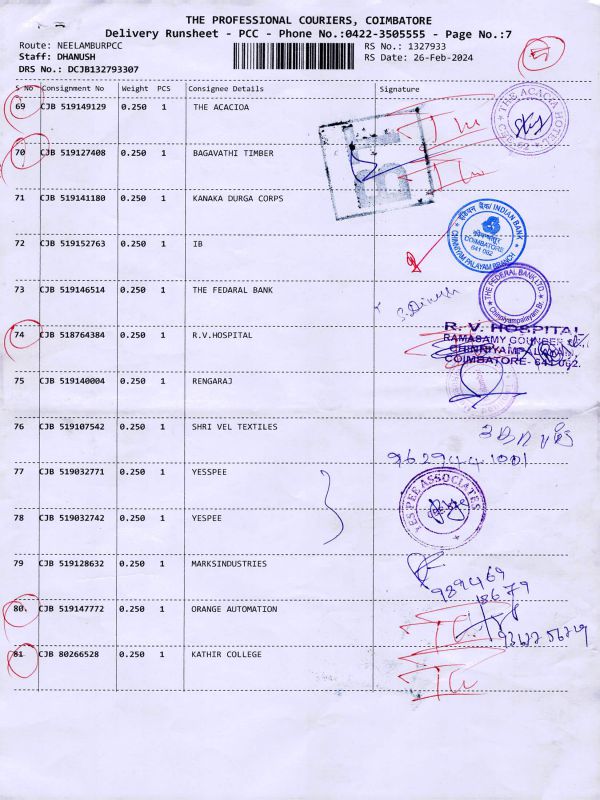 THE PROFESSIONAL COURIERS, COIMBATORE
Delivery Runsheet - PCC - Phone No.:0422-3505555 - Page No.:7
Route: NEELAMBURPCC RS No.: 1327933
Staff: DHANUSH RS Date: 26-Feb-2024
DRS No.: DCJB132793307
S No Consignment No Weight PCS Consignee Details Signature
69 CJB 519149129 0.250 1 THE ACACIOA
70 CJB 519127408 0.250 1 BAGAVATHI TIMBER
71 CJB 519141180 0.250 1 KANAKA DURGA CORPS
72 CJB 519152763 0.250 1 IB
इंडियन बैंक/ INDIAN BANK
COIMBATORE
641 062
CHINNIYAM PALAYAM BRANCH
73 CJB 519146514 0.250 1 THE FEDARAL BANK
THE FEDERAL BANK LTD.
Chinniyampalayam Br.
S. Dinesh
74 CJB 518764384 0.250 1 R.V.HOSPITAL
R. V. HOSPITAL
RAMASAMY GOUNDER
CHINNIYAMPALAYAM,
COIMBATORE- 641 062.
75 CJB 519140004 0.250 1 RENGARAJ
76 CJB 519107542 0.250 1 SHRI VEL TEXTILES
96294 41001
77 CJB 519032771 0.250 1 YESSPEE
YES PEE ASSOCIATES
78 CJB 519032742 0.250 1 YESPEE
79 CJB 519128632 0.250 1 MARKSINDUSTRIES
989469
18679
80 CJB 519147772 0.250 1 ORANGE AUTOMATION
81 CJB 80266528 0.250 1 KATHIR COLLEGE